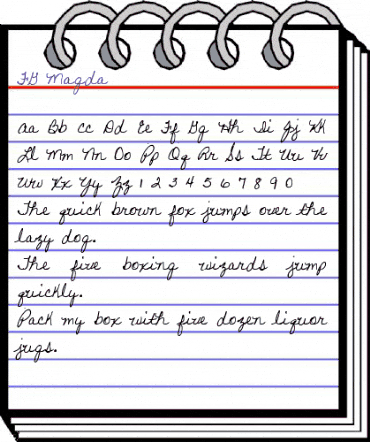 FG Magda
aa Bb cc Dd Ee Ff Gg Hh Ii Jj Kk
Ll Mm Nn Oo Pp Qq Rr Ss Tt Uu Vv
Ww Xx Yy Zz 1 2 3 4 5 6 7 8 9 0
The quick brown fox jumps over the
lazy dog.
The five boxing wizards jump
quickly.
Pack my box with five dozen liquor
jugs.